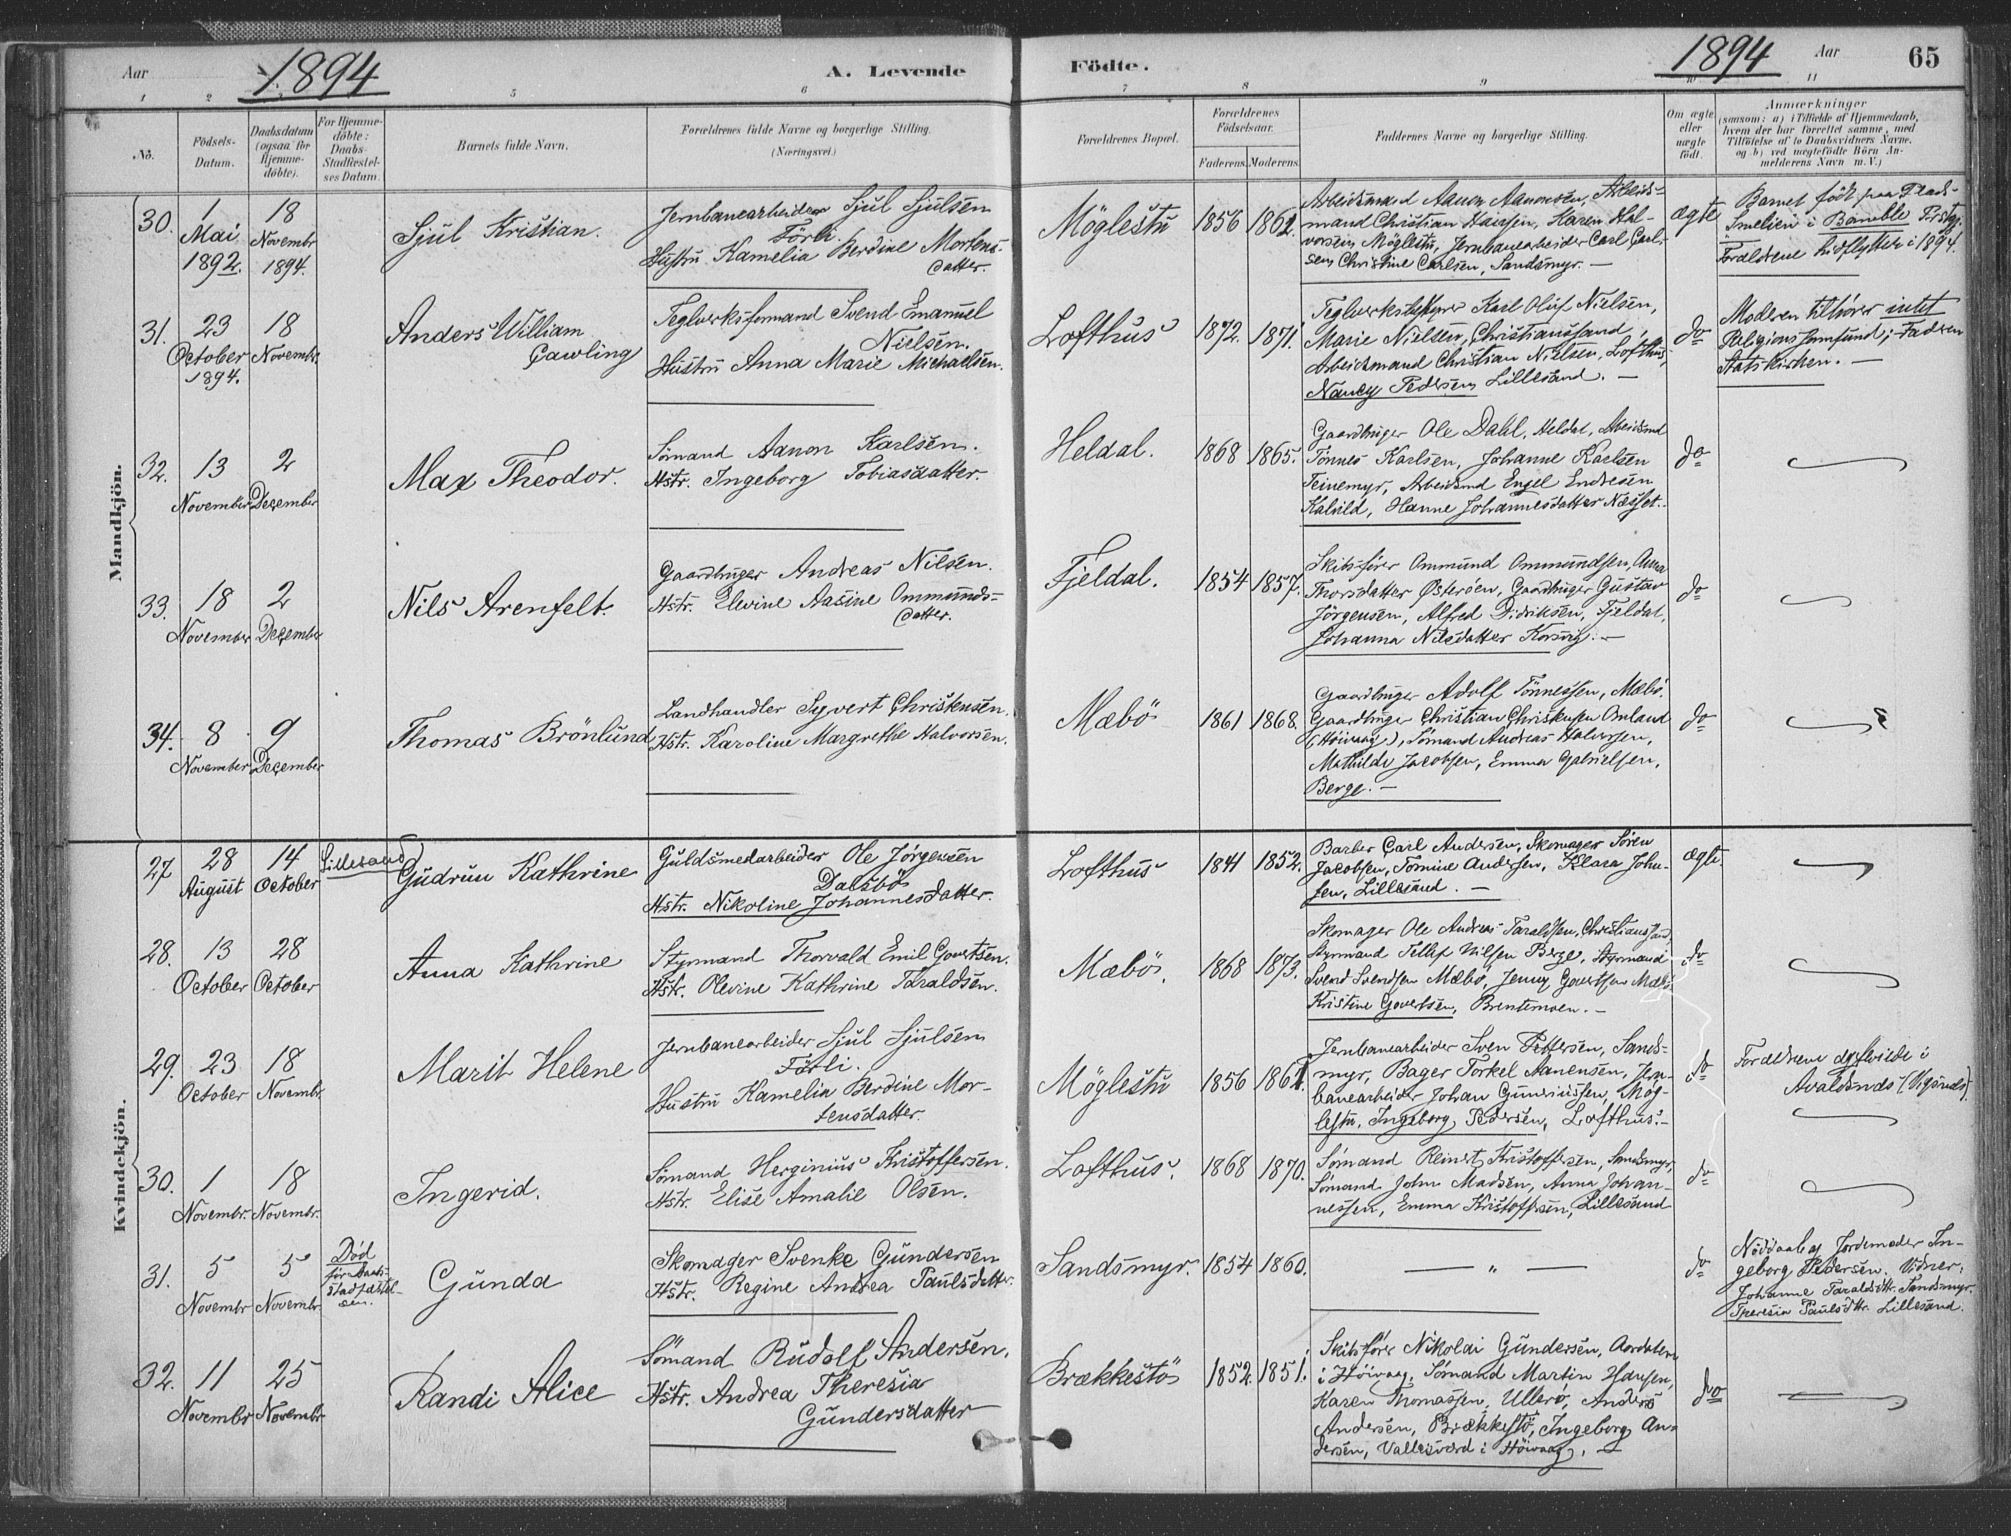 Aar 1894 A. Levende Födte. 1894 Aar 65
1 2 5 6 7 8 9 10 11
No.
Födsels-Datum.
Daabsdatum (ogsaa for Hjemme-döbte).
For Hjemme-döbte: Daabs-Stadfæstel-ses Datum.
Barnets fulde Navn.
Forældrenes fulde Navne og borgerlige Stilling. (Næringsvei.)
Forældrenes Bopæl.
Forældrenes Födselsaar.
Faderens. Moderens.
Faddernes Navne og borgerlige Stilling.
Om ægte eller uægte födt.
Anmærkninger
(saasom: a) i Tilfælde af Hjemmedaab,
hvem der har forrettet samme, med
Tilföielse af to Daabsvidners Navne,
og b) ved uægtefödte Börn An-
melderens Navn m. V.)
Mandkjön.
30. 1 Mai 1892. 18 Novembr 1894.
Sjul Kristian.
Jernbanearbeider Sjul Sjulsen
Förli.
Hustru Kamelia Berdine Mortens-
datter.
Möglestu 1856 1862.
Arbeidsmand Aanon Aanonsen, Arbeids-
mand Christian Hansen, Karen Hal-
vorsen, Möglestu, Jernbanearbeider Carl Carl-
sen, Christine Carlsen, Sandsmyr. —
ægte
Barnet födt paa Plads.
Smelien i Bamble Prstgj.
Forældrene hidflyttede i 1894.
31. 23 October 1894. 18 Novembr.
Anders William
Gawling
Teglverksformand Svend Emanuel
Nielsen.
Hustru Anna Marie Michaelsen.
Lofthus 1872. 1871.
Teglverksbestyrer Karl Oluf Nielsen,
Marie Nielsen, Christianssand,
Arbeidsmand Christian Nielsen, Lofthus,
Nancy Pedersen, Lillesand. —
do
Moderen tilhører intet
Religionssamfund; Faderen
Statskirken. —
32. 13 November 2 December
Max Theodor.
Sömand Aanon Karlsen.
Hstr. Ingeborg Tobiasdatter.
Heldal. 1868 1865.
Gaardbruger Ole Dahl, Heldal, Arbeidsmd
Tönnes Karlsen, Johanne Karlsen
Teinemyr, Arbeidsmd Engel Endresen
Kalvild, Hanne Johannesdatter Næsset.
do
33. 18 November 2 December
Nils Arenfelt.
Gaardbruger Andreas Nilsen.
Hstr. Elevine Aasine Ommunds-
datter.
Fjeldal. 1854 1857.
Skibsförer Ommund Ommundsen, Anna
Thorsdatter Østerøen, Gaardbruger Gustav
Jörgensen, Alfred Didriksen, Fjeldal,
Johanna Nilsdatter Korsvig. —
do
34. 8 November 9 December
Thomas Brönlund
Landhandler Syvert Christensen.
Hstr. Karoline Margrethe Halvorsen.
Mæbö 1861 1868.
Gaardbruger Adolf Tönnessen, Mæbö.
Gaardbruger Christian Christensen Omland
(Höivaag), Sömand Andreas Halvorsen,
Mathilde Jacobsen, Emma Gabrielsen,
Berge. —
do
Kvindekjön.
27 28 August 14 October Lillesand
Gudrun Kathrine
Guldsmedarbeider Ole Jørgensen
Dalsbö
Hstr. Nikoline Johannesdatter.
Lofthus 1841 1852.
Barber Carl Andersen, Skomager Søren
Jacobsen, Tomine Andersen, Klara John-
sen, Lillesand. —
ægte
28. 13 October 28 October
Anna Kathrine
Styrmand Thorvald Emil Govertsen.
Hstr. Olevine Kathrine Taraldsen.
Mæbö. 1868 1873.
Skomager Ole Andreas Taraldsen, Christianssand,
Styrmand Tellef Nilsen Berge, Styrmand
Svend Svendsen Mæbö, Jenny Govertsen Mæbö
Kristine Govertsen, Brentemoen. —
do
29. 23 October 18 Novembr.
Marit Helene
Jernbanearbeider Sjul Sjulsen
Förli.
Hustru Kamelia Berdine Mor-
tensdatter.
Möglestu 1856 1861.
Jernbanearbeider Sven Pettersen, Sands-
myr, Bager Torkel Aanensen, Jern-
banearbeider Johan Gunniussen, Mög-
lestu, Ingeborg Pedersen, Lofthus. —
do
Forældrene i
30. 1 Novembr. 18 Novembr.
Ingerid.
Sömand Herginius Kristoffersen.
Hstr. Elise Amalie Olsen.
Lofthus. 1868 1870.
Sömand Reinert Kristoffersen, Sandsmyr,
Sömand John Madsen, Anna Johan-
nessen, Emma Kristoffersen, Lillesand
do
31. 5 Novembr 5 Novembr.
Död
för Daabs-
stadfæstel-
sen.
Gunda
Skomager Svenke Gundersen
Hstr. Regine Andrea Paulsdatter.
Sandsmyr. 1854 1860.
— „ —
do
Nöddaab af Jordemoder In-
geborg Pedersen. Vidner:
Johanne Taraldsdtr. Sandsmyr.
Theresia Paulsdtr. Lillesand.
32. 11 Novembr 25 Novembr
Randi Alice
Sömand Rudolf Andersen.
Hstr. Andrea Theresia
Gundersdatter
Brækkestö 1852 1851.
Skibsförer Nikolai Gundersen,
i Höivaag, Sömand Martin Hansen,
Karen Thomassen, Ulleröe, Anders
Andersen, Brækkestö, Ingeborg An-
dersen, Vallesværd i Höivaag. —
do